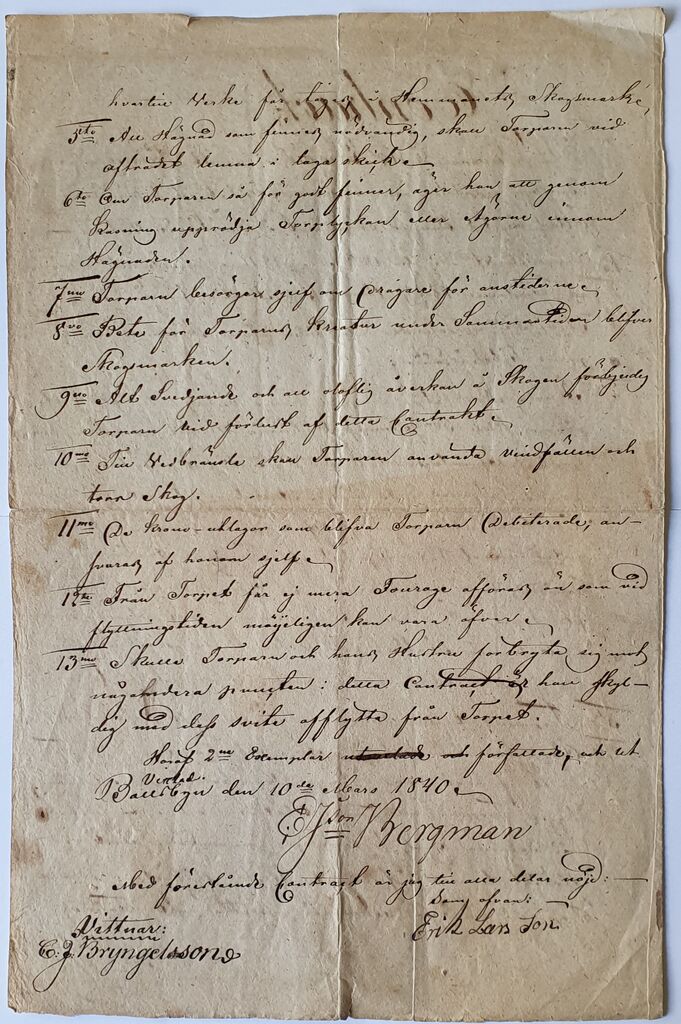 hvartill Virke får tagas i Hemmanets Skogsmark,
5to All Hägnad som finnes nödvändig, skall Torparn vid
afträdet lemna i laga skick.
6to Om Torparen så för godt finner, äger han att genom
Kasning upprödja Torplyckan eller Ägorne innom
Hägnaden.
7mo Torparn besörger sjelf om Drågare för anstiderne.
8vo Bete för Torparns Kreatur under Sommartiden blifver
Skogsmarken.
9no Alt Svedjande och all oloflig åverkan å Skogen förbjudes
Torparn vid förlust af detta Contrakt.
10mo Till Vedbränsle skall Torparen använda vindfällen och
torr Skog.
11mo De Krono-utlagor som blifva Torparn Debiterade, an-
svaras af honom sjelf.
12te Från Torpet får ej mera Fourage afföras än som vid
flyttningstiden möjeligen kan vara öfver.
13mo Skulle Torparn och hans Hustru förbryta sig mot
någondera puncten i detta Contract är han skyl-
dig med dess svite afflytta från Torpet.
Häraf 2ne Exemplar och författade, och ut
Vexlad.
den 10de Mars 1840.
E Json Bergman
Med förestående Contract är jag till alla delar nöjd:
Som ofvan:
Erik Lars Son
Vittnar:
C. J. Bryngelsson